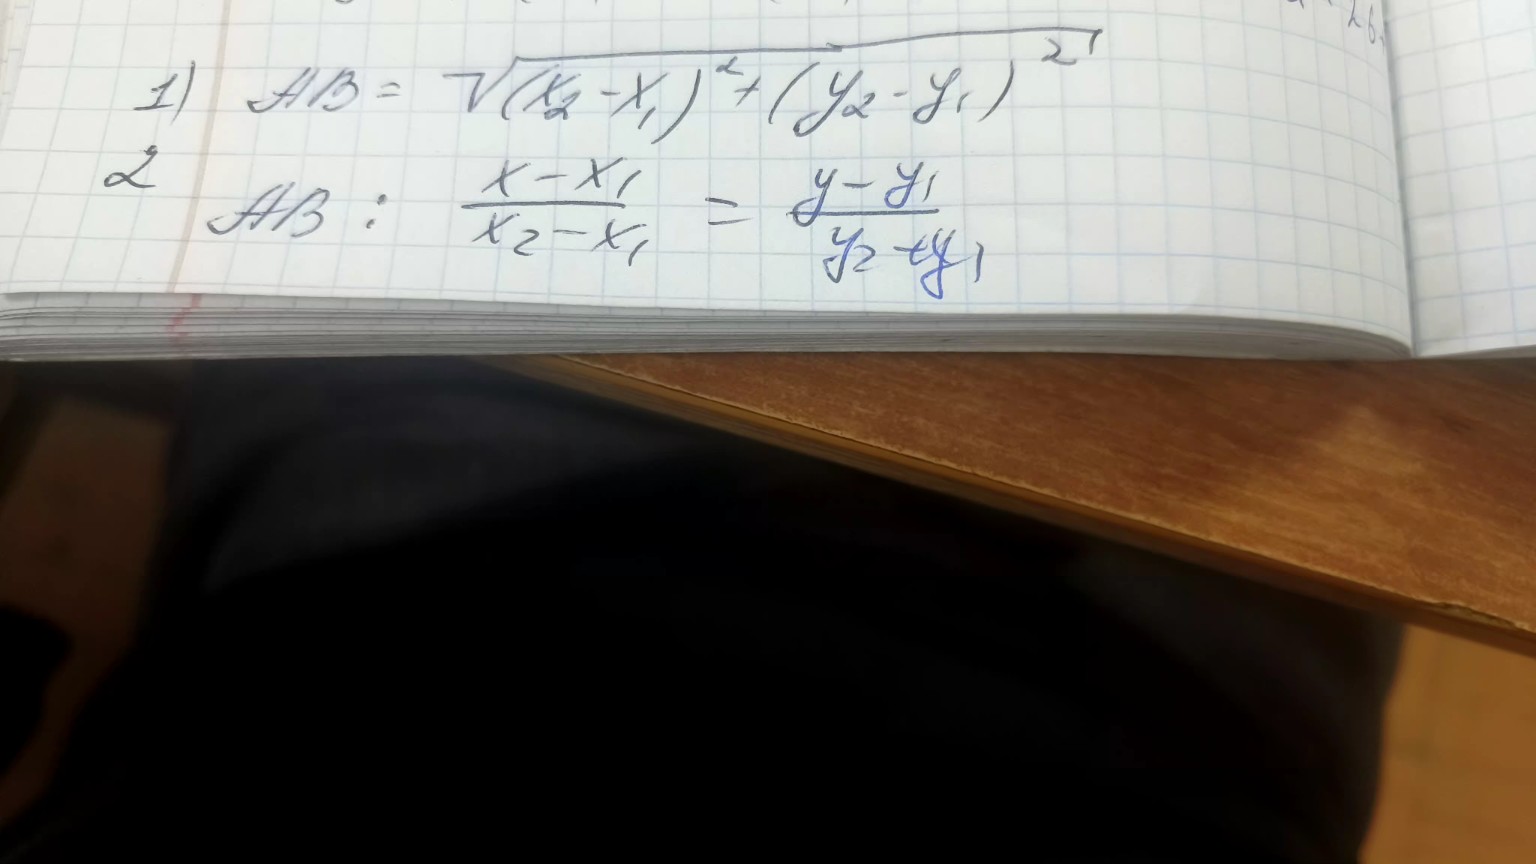 1) AB = √(x₂ - x₁)² + (y₂ - y₁)²
2 AB : (x - x₁)/(x₂ - x₁) = (y - y₁)/(y₂ + y₁)